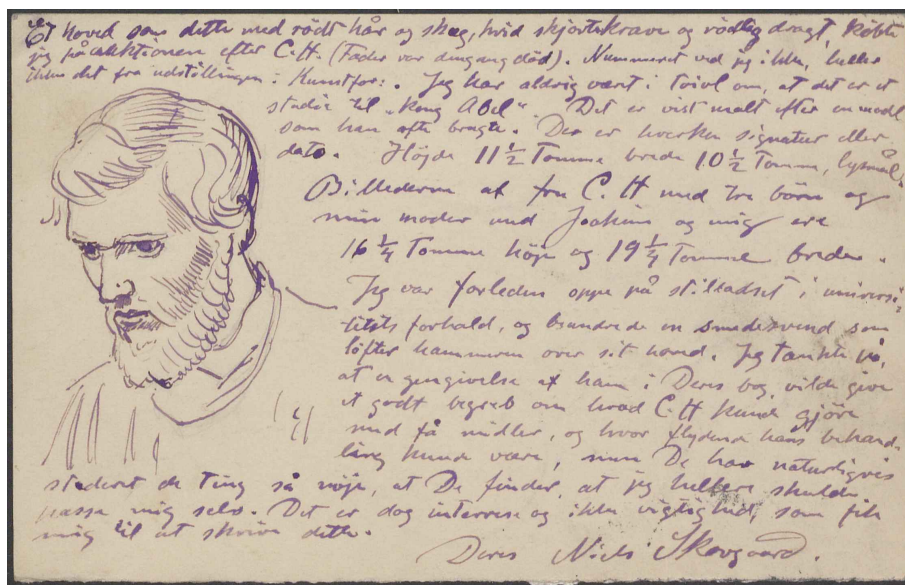 Et hoved som dette med rödt hår og skæg, hvid skjortekrave og rödlig dragt, köbte
jeg på auktionen efter C.H. (Fader var dengang död). Nummeret ved jeg ikke, heller
ikke det fra udstillingen i Kunstfor:. Jeg har aldrig været i tvivl om, at det er et
studie til "Kong Abel". Det er vist malt efter en model
som han ofte brugte. Der er hverken signatur eller
dato. Höjde 11 1/2 Tomme brede 10 1/2 Tomme, lysmål.
Billederne af fru C. H med tre börn og
min moder med Joakim og mig ere
16 1/4 Tomme höje og 19 1/4 Tomme brede.
Jeg var forleden oppe på stilladset i universi-
tetets forhald, og beundrede en smedesvend som
löfter hammeren over sit hoved. Jeg tænkte på,
at en gengivelse af ham i Deres bog vilde give
et godt begreb om hvad C.H kunde gjöre
med få midler, og hvor flydende hans behand-
ling kunde være, men De har naturligvis
studeret de ting så nöje, at De finder, at jeg hellere skulde
passe mig selv. Det er dog interesse og ikke vigtighed, som fik
mig til at skrive dette.
Deres Niels Skovgaard.